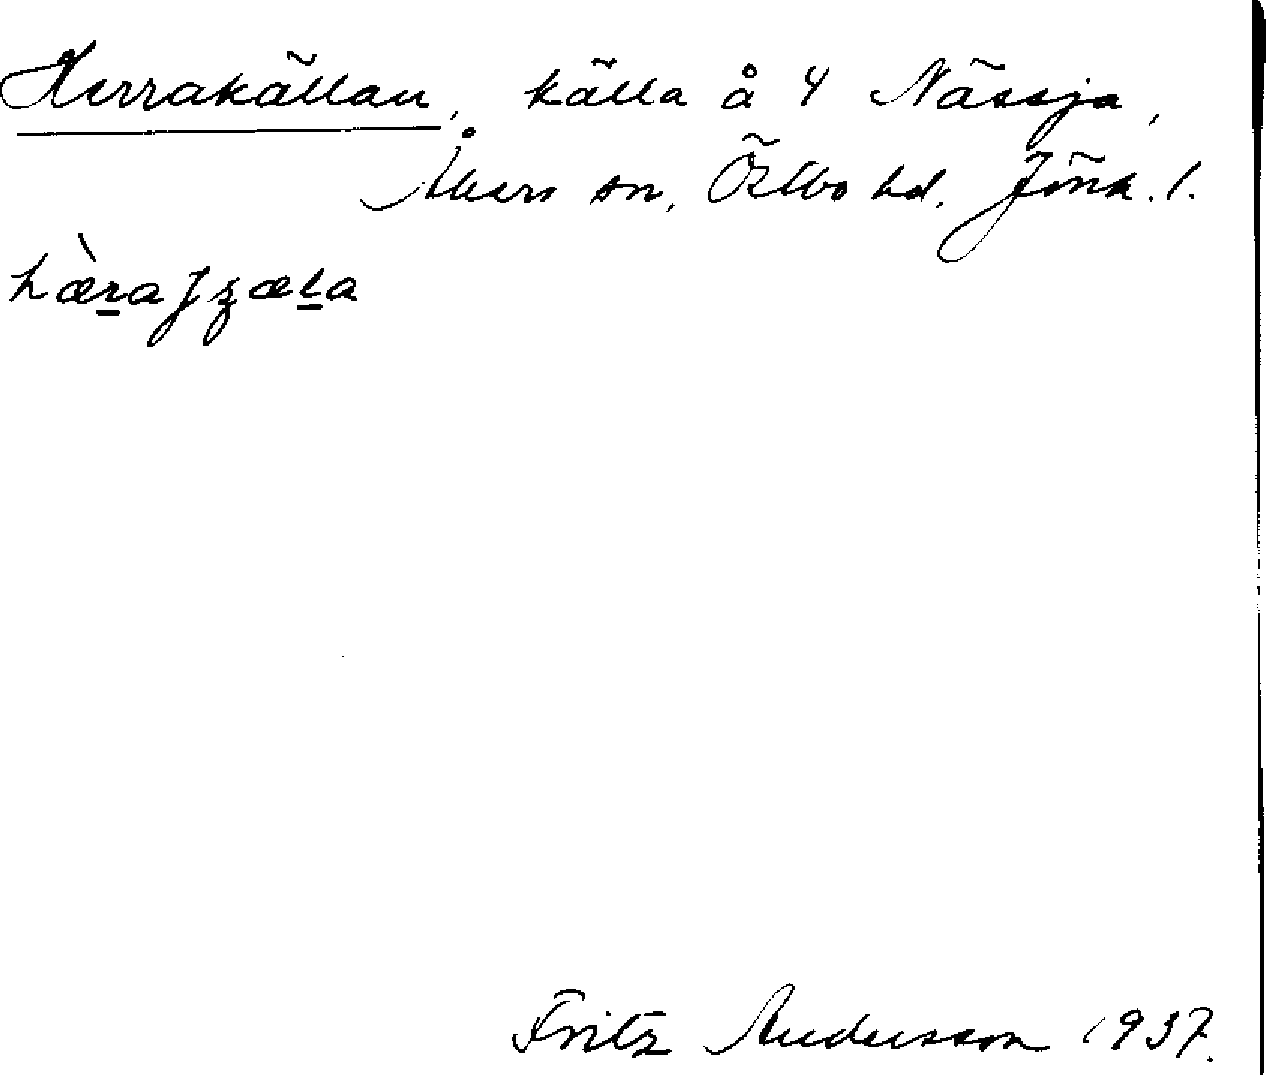 Herrakällan, källa å 4 Nässja,
Åkers sn, Östbo hd. Jönk. l.
hæ̀ra
Fritz Andersson 1937.